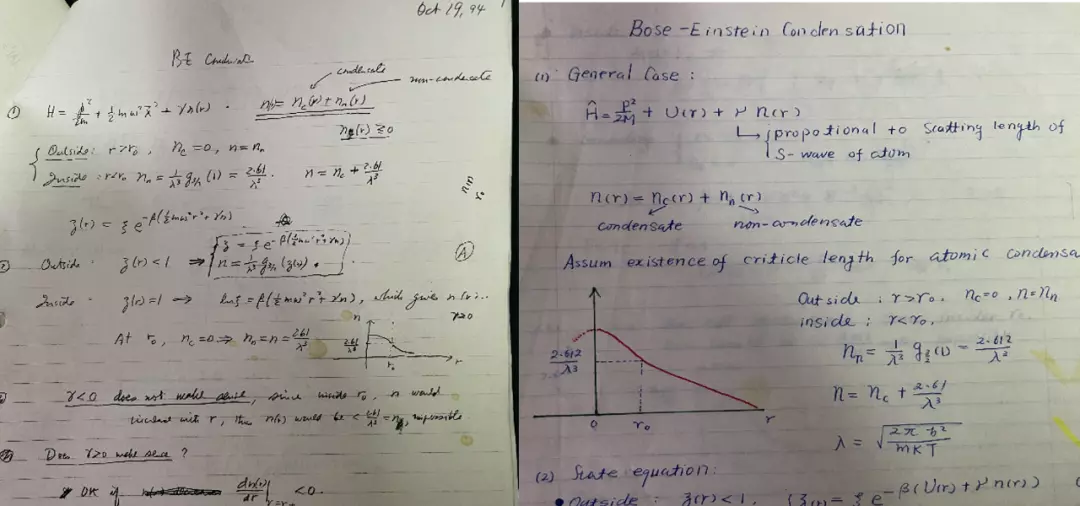 Oct 19, 94
BE Condensate
condensate
non-condensate
① H = p²/2m + ½mω²x² + γn(r) . n(r) = n_c(r) + n_n(r)
n_c(r) ≥ 0
Outside: r>r₀, n_c = 0, n = n_n
Inside: r<r₀ n_n = 1/λ³ g_{3/2}(1) = 2.61/λ³. n = n_c + 2.61/λ³
z(r) = ξ e^{-β(½mω²r² + γn)}
z = ξ e^{-β(½mω²r² + γn)}
② Outside z(r) < 1 ⇒ n = 1/λ³ g_{3/2}(z(r)).
Ⓐ
Inside z(r) = 1 → lnξ = β(½mω²r² + γn), which gives n(r)..
γ>0
At r₀, n_c = 0 ⇒ n_n = n = 2.61/λ³
n
2.61/λ³
r₀
r
γ<0 does not make sense, since inside r₀, n would
increase with r, thus n(0) would be < 2.61/λ³ = n_n, impossible
Does γ>0 make sense?
OK if dn(r)/dr|r=r₀ < 0.
Bose-Einstein Condensation
(1) General Case:
Ĥ = P²/2M + U(r) + γ n(r)
propotional to Scatting length of
S-wave of atom
n(r) = n_c(r) + n_n(r)
condensate non-condensate
Assum existence of criticle length for atomic condensa
Outside : r>r₀. n_c=0, n=n_n
inside : r<r₀.
n_n = 1/λ³ g_{3/2}(1) = 2.612/λ³
n = n_c + 2.61/λ³
λ = √(2πħ²/mKT)
2.612/λ³
0 r₀ r
(2) State equation:
• Outside : z(r)<1. { z(r) = ξ e^{-β(U(r)+γn(r))}